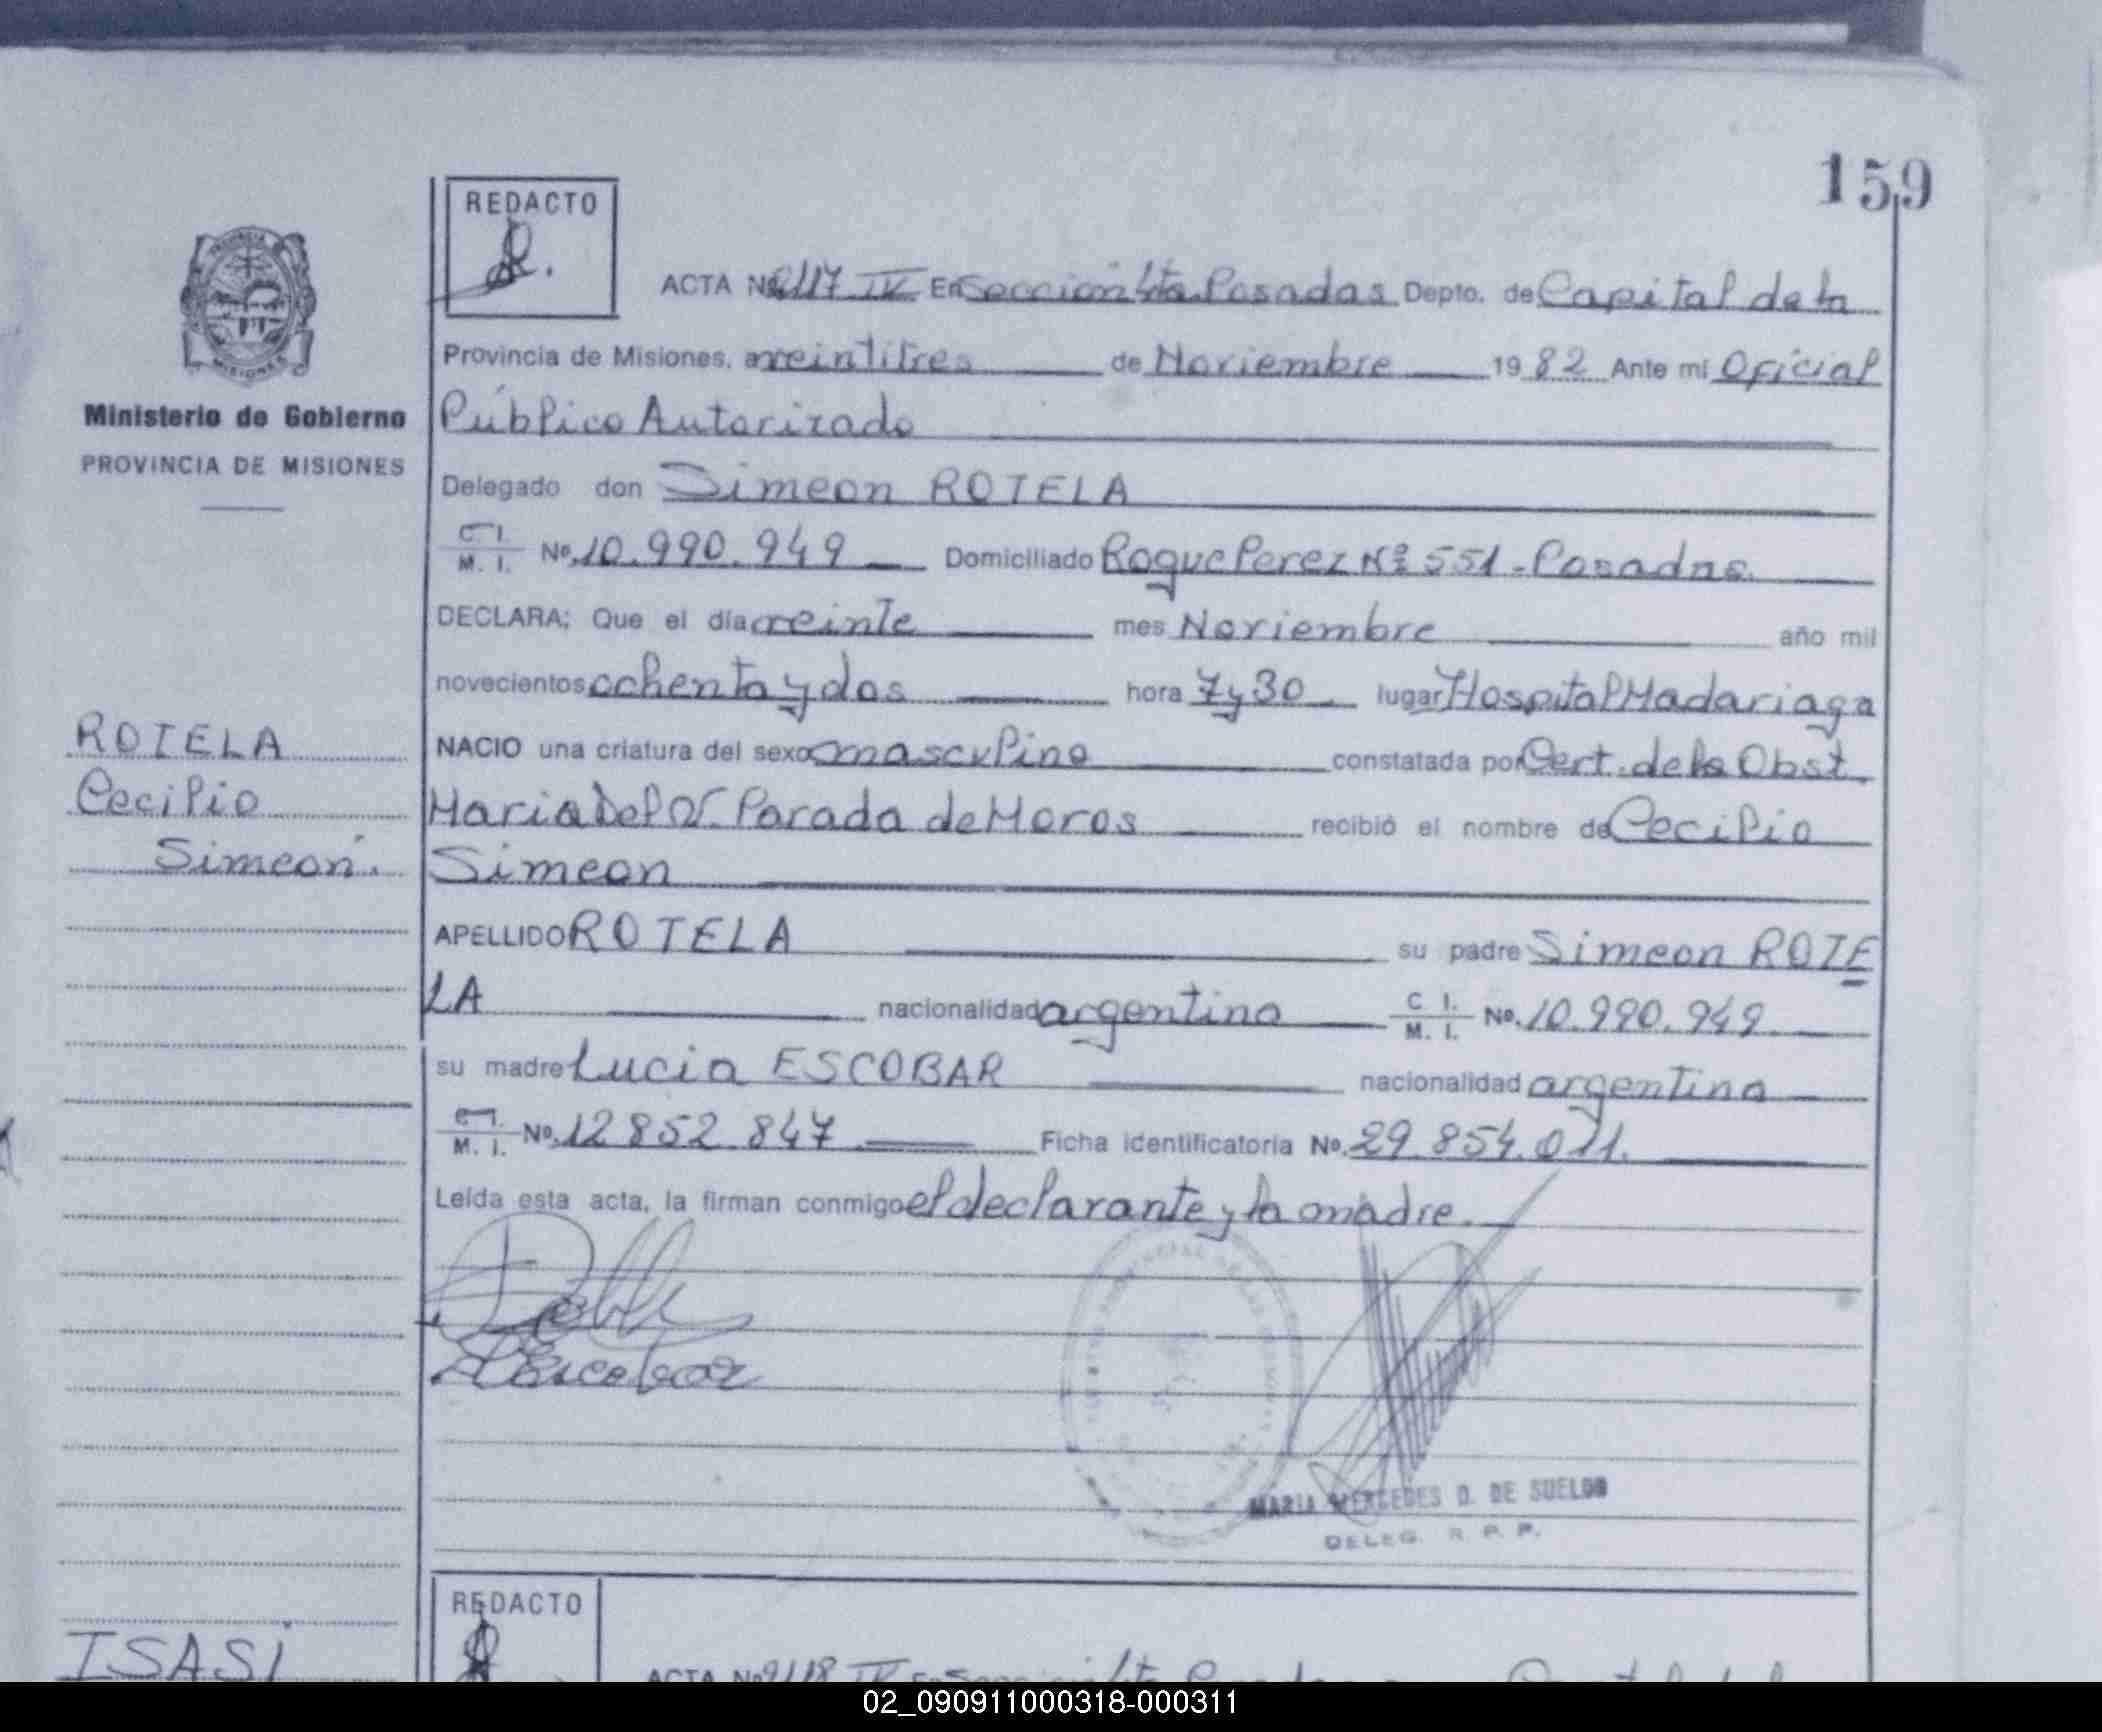 159
REDACTO
ACTA Nº 2117 IV En Sección 4ta. Posadas Depto. de Capital de la
Provincia de Misiones, a veintitres de Noviembre 1982 Ante mí Oficial
Ministerio de Gobierno
PROVINCIA DE MISIONES
Público Autorizado
Delegado don Simeon ROTELA
C. I.
M. I. Nº. 10.990.949 Domiciliado Roque Perez Nº 551 - Posadas.
DECLARA; Que el día veinte mes Noviembre año mil
novecientos ochenta y dos hora 7 y 30 lugar Hospital Madariaga
ROTELA
Cecilio
Simeón.
NACIO una criatura del sexo masculino constatada por Cert. de la Obst.
Maria Del Parada de Moros recibió el nombre de Cecilio
Simeon
APELLIDO ROTELA su padre Simeon ROTE
LA nacionalidad argentino C I.
M. I. Nº. 10.990.949
su madre Lucia ESCOBAR nacionalidad argentina
C. I.
M. I. Nº. 12 852 847 Ficha identificatoria Nº. 29.854.011.
Leída esta acta, la firman conmigo el declarante y la madre.
Escobar
MARIA MERCEDES D. DE SUELDO
DELEG. R. P. P.
REDACTO
ISASI
ACTA Nº 2118 IV En
02_090911000318-000311